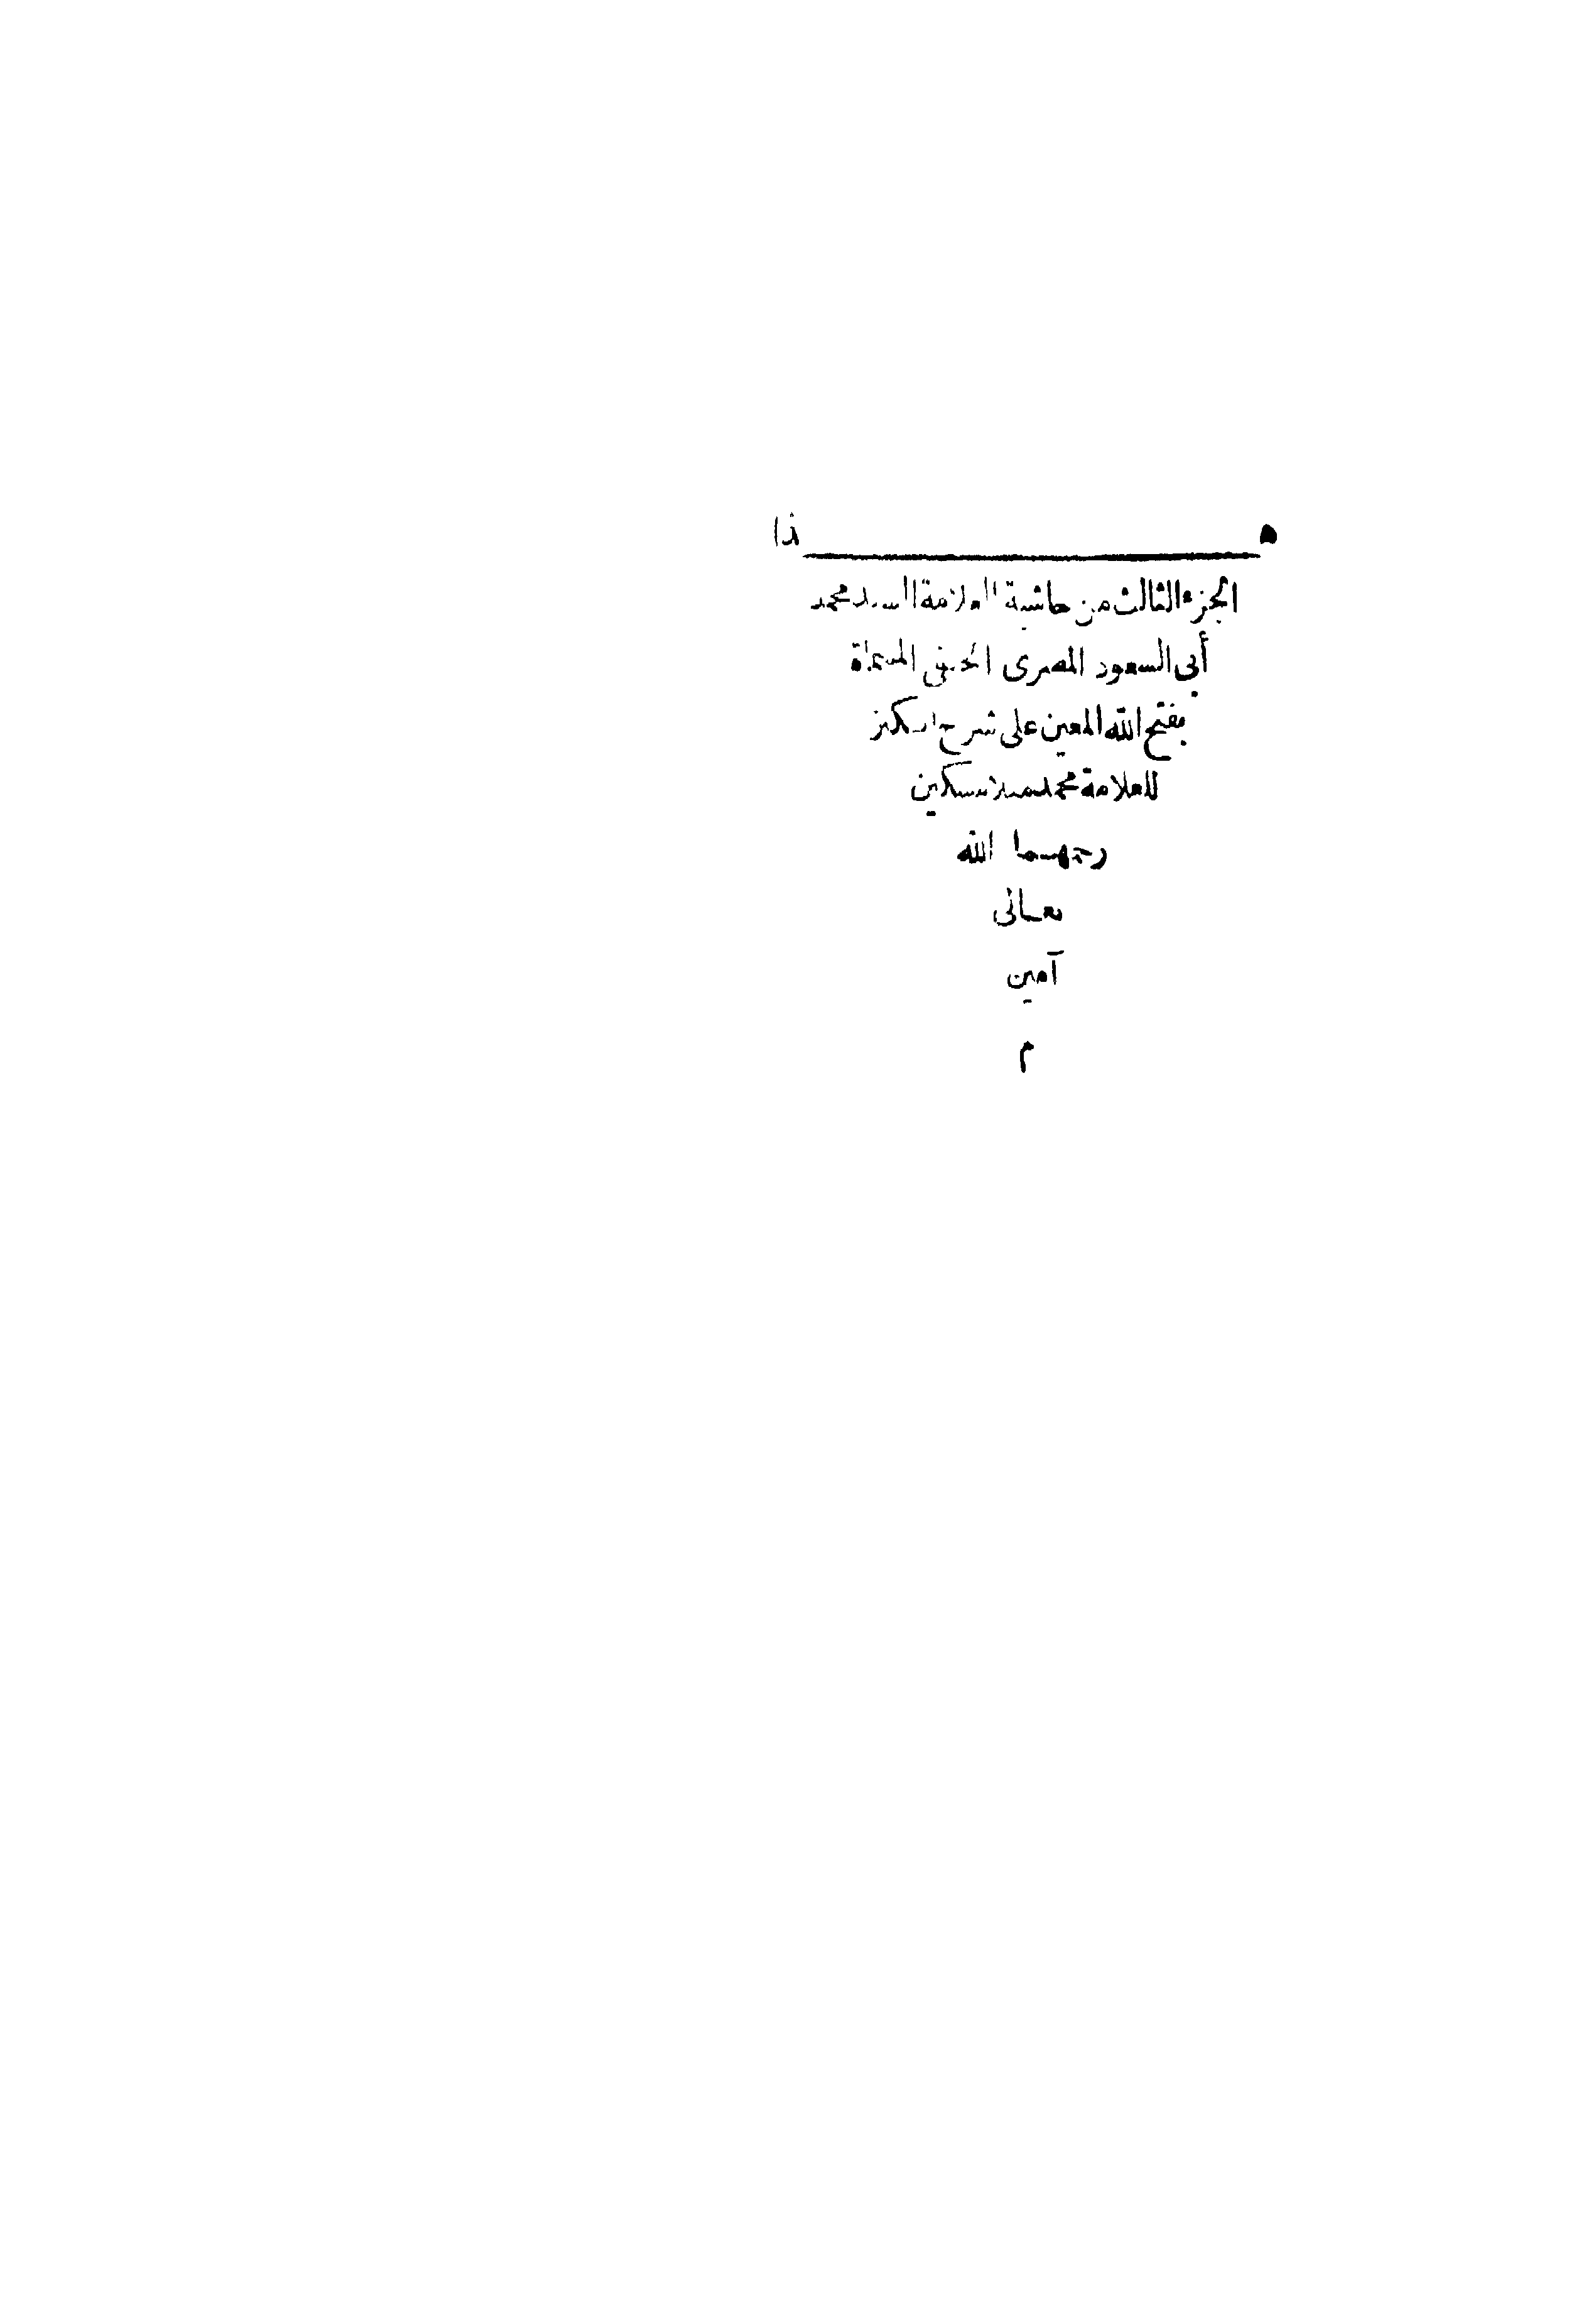 هذا
الجزء الثالث من حاشية العلامة السيد محمد
أبي السعود المصرى الحنفى المسماة
بفتح الله المعين على شرح الكنز
للعلامة محمد منلا مسكين
رحمهما الله
تعالى
آمين
م